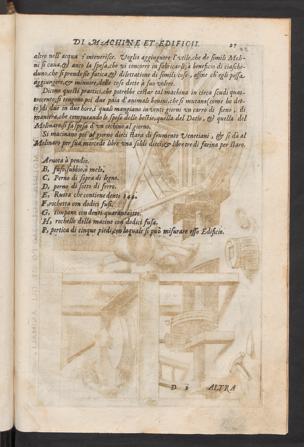 DI MACHINE ET EDIFICII. 27
altro nell'acqua s'incenerisce. Voglio aggiungere l'utile, che de simili Moli-
ni si cava, & anco la spesa, che vi concorre in fabricarli; à beneficio di ciasche-
duno, che si prende fatica, & dilettatione di simili cose, affine ch'egli possa
aggiungere, & minuire, delle cose dette à suo volere.
Dicono questi prattici, che potrebbe costar tal machina in circa scudi quat-
trocento, & tengono poi due paia d'animali bovini, che si mutano come hò det-
to di due in due hore, i quali mangiano in venti giorni un carro di fieno; di
maniera, che computando le spese delle bestie, quella del Datio, & quella del
Molinaro, fà la spesa d'un cechino al giorno.
Si macinano poi al giorno dieci stara di formento Venetiani, & si dà al
Molinaro per sua mercede libre una soldi dieci, & libre tre di farina per staro.
A, ruota à pendio.
B, fuso,
C, Perno di sopra di legno.
D, perno di sotto di ferro.
E, Ruota che contiene denti 144.
F, rochetta con dodici fusi.
G, timpano con denti quarantaotto.
H, rochello della macina con dodici fusa.
P, pertica di cinque piedi, con laquale si può misurare esso Edificio.
D 2 ALTRA